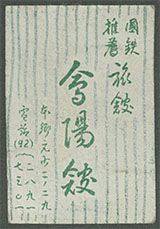 國鉄
推薦
旅舘
會陽舘
本郷元町二ノ三九
電話(92)二八九一
七三〇一